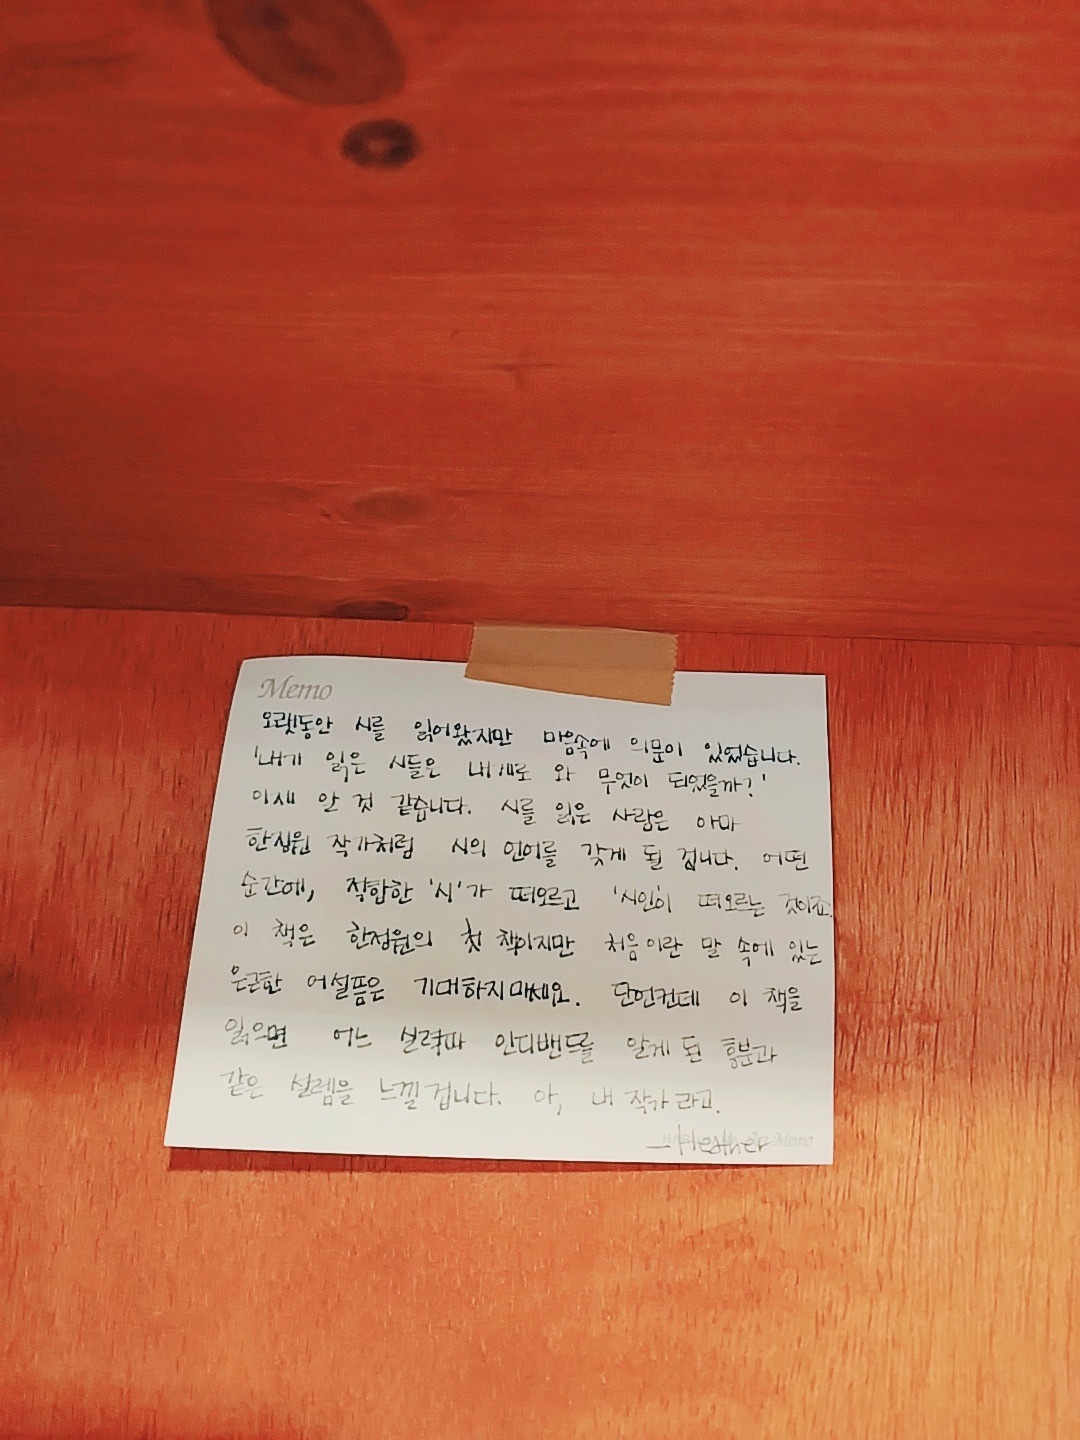 Memo
오랫동안 시를 읽어왔지만 마음속에 의문이 있었습니다.
'내가 읽은 시들은 내게로 와 무엇이 되었을까?'
이제 알 것 같습니다. 시를 읽은 사람은 아마
한정원 작가처럼 시의 언어를 갖게 될 겁니다. 어떤
순간에, 적합한 '시'가 떠오르고 '시인'이 떠오르는 것이죠.
이 책은 한정원의 첫 책이지만 처음이란 말 속에 있는
은근한 어설픔은 기대하지마세요. 단언컨데 이 책을
읽으면 어느 실력파 인디밴드를 알게 된 흥분과
같은 설렘을 느낄겁니다. 아, 내 작가라고.
—Heather
Memo